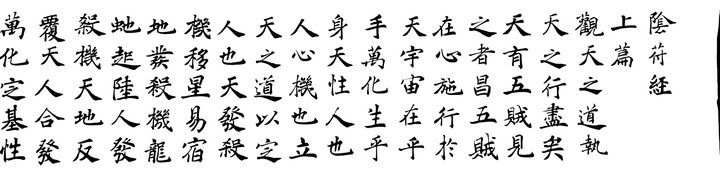 陰苻經
上篇
觀天之道執
天之行盡矣
天有五賊見
之者昌五賊
在心施行於
天宇宙在乎
手萬化生乎
身天性人也
人心機也立
天之道以定
人也天發殺
機移星易宿
地發殺機龍
虵起陸人發
殺機天地反
覆天人合發
萬化定基性